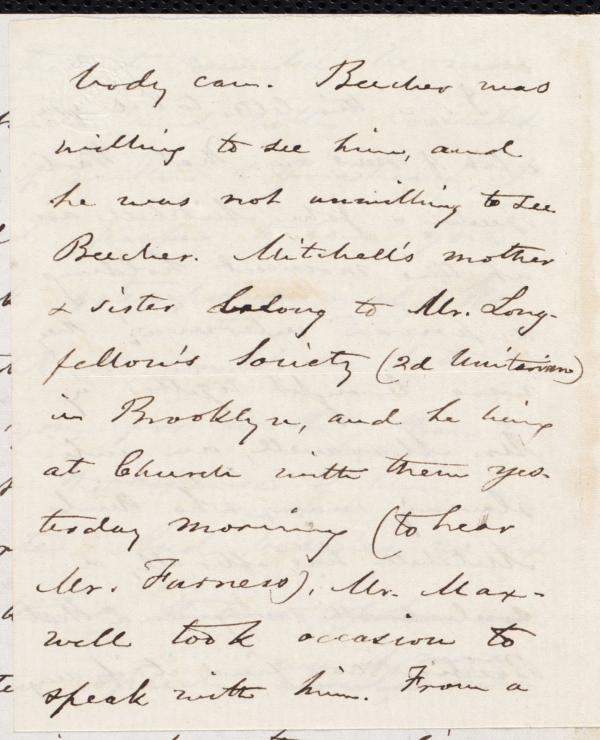 body can. Beecher was
willing to see him, and
he was not unwilling to see
Beecher. Mitchell's mother
& sister belong to Mr. Long-
fellow's Society (2d Unitarian)
in Brooklyn, and he being
at Church with them yes-
terday morning (to hear
Mr. Furness), Mr. Max-
well took occasion to
speak with him. From a